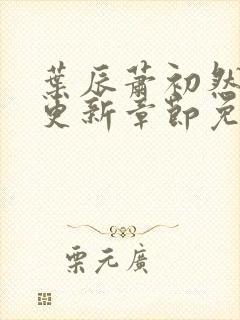 葉辰蕭初然
更新章節免
栗元廣